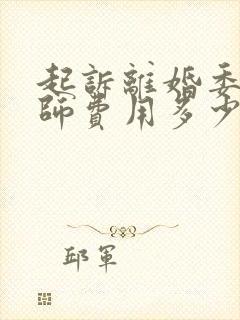 起訴離婚委
師費用多少
邱軍